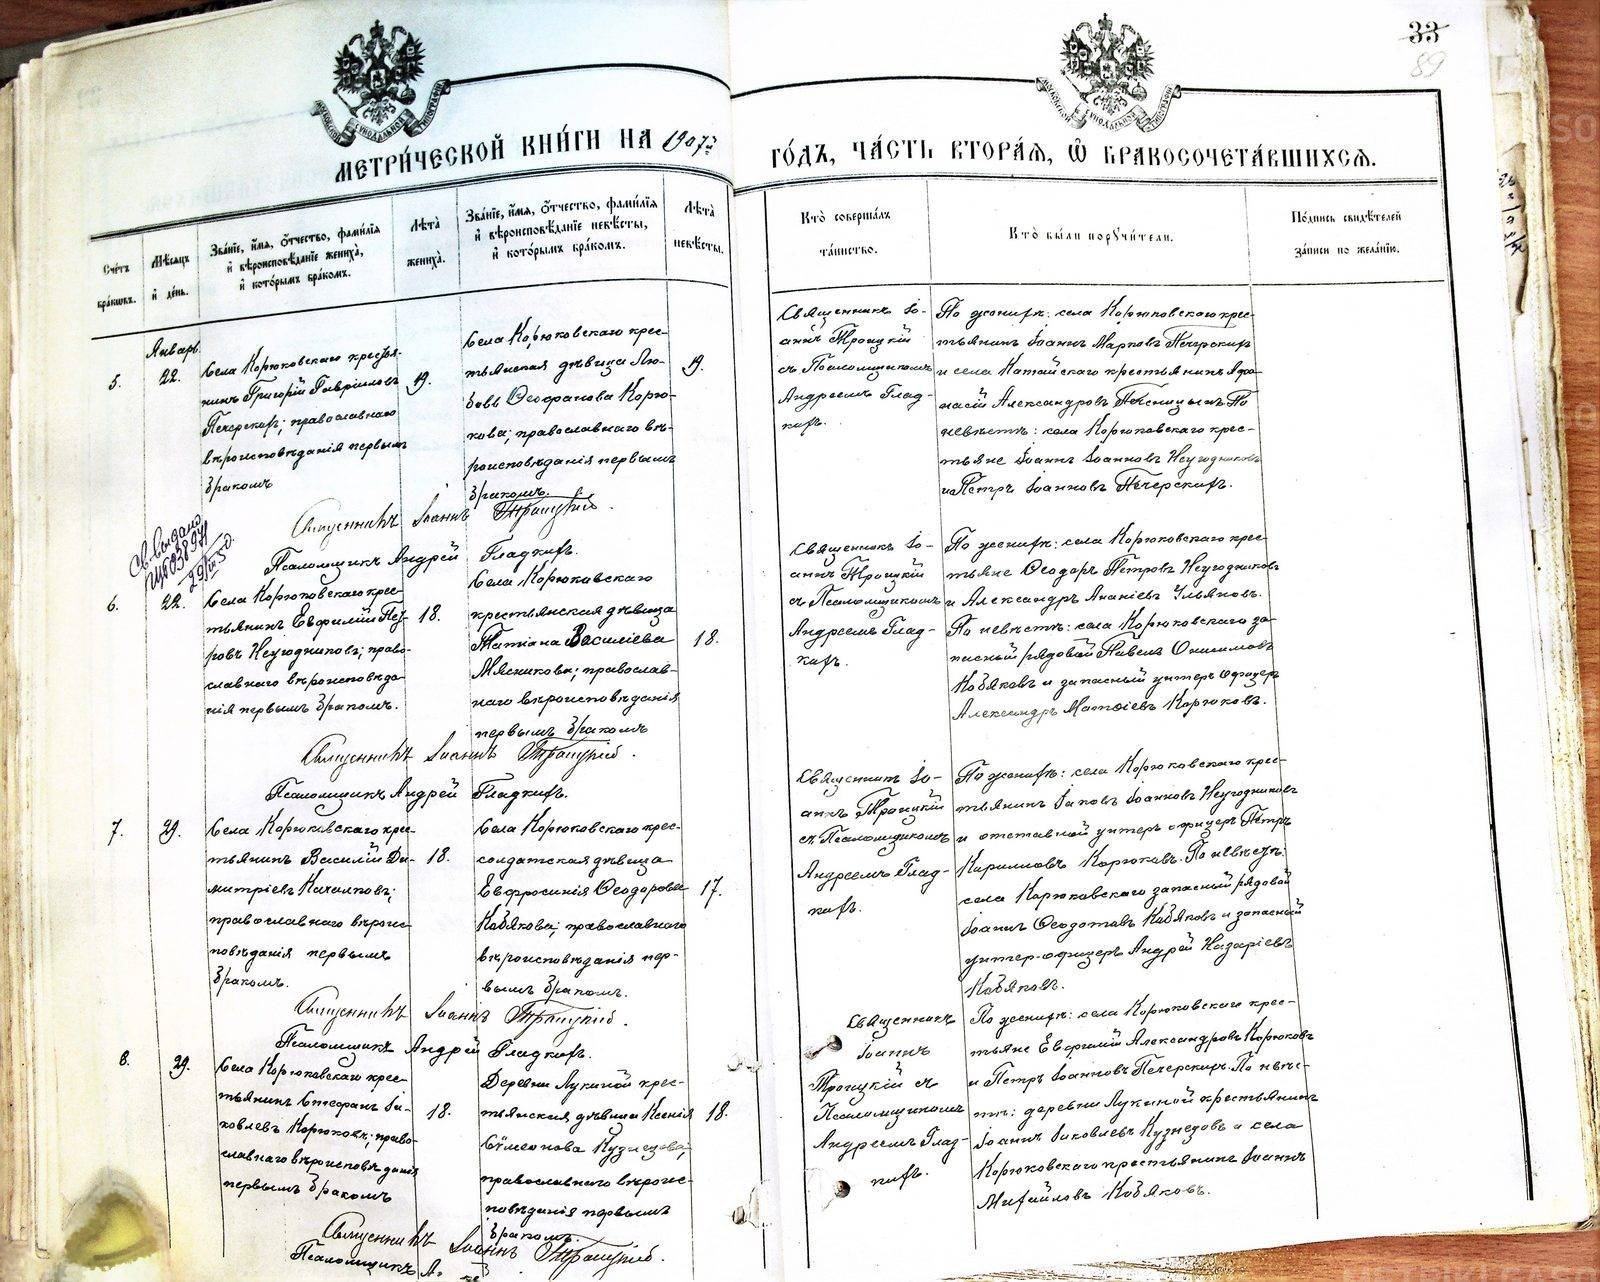 33
89
МЕТРИ́ЧЕСКОЙ КНИ́ГИ НА 1907й
ГО́ДЪ, ЧА́СТЬ ВТОРА́Я, Ѽ БРАКОСОЧЕТА́ВШИХСЯ.
Сче́тъ бра́ковъ.
Мѣ́сяцъ и҆ де́нь.
Зва́нїе, и҆́мя, ѻ҆́тчество, фами́лїя
и҆ вѣроисповѣ́данїе жениха̀,
и҆ кото́рымъ бра́комъ.
Лѣ́та жениха̀.
Зва́нїе, и҆́мя, ѻ҆́тчество, фами́лїя
и҆ вѣроисповѣ́данїе невѣ́сты,
и҆ кото́рымъ бра́комъ.
Лѣ́та невѣ́сты.
Кто̀ соверша́лъ
та́инство.
Кто̀ бы́ли порꙋчи́тели.
По́дпись свидѣ́телей
за́писи по жела́нїю.
5.
Январь
22.
Села Корюковскаго крестья-
нинъ Григорій Гавріиловъ
Печерскихъ; православнаго
вѣроисповѣданія первымъ
бракомъ
19.
Села Корюковскаго крес-
тьянская дѣвица Лю-
бовь Ѳеофанова Корю-
кова; православнаго вѣ-
роисповѣданія первымъ
бракомъ.
19.
Священникъ Іо-
аннъ Троицкій
съ Псаломщикомъ
Андреемъ Глад-
кихъ.
По женихѣ: села Корюковскаго крес-
тьянинъ Іоаннъ Марковъ Печерскихъ
и села Катайскаго крестьянинъ Аѳа-
насій Александровъ Пѣсницынъ По
невѣстѣ: села Корюковскаго крес-
тьяне Іоаннъ Іоанновъ Неугодниковъ
и Петръ Іоанновъ Печерскихъ.
Священникъ Іоаннъ Троицкій.
Псаломщикъ Андрей Гладкихъ.
Св. выдано
6.
22.
Села Корюковскаго крес-
тьянинъ Евфимій Пет-
ровъ Неугодниковъ; право-
славнаго вѣроисповѣда-
нія первымъ бракомъ.
18.
Села Корюковскаго
крестьянская дѣвица
Татіана Василіева
Мясникова; православ-
наго вѣроисповѣданія
первымъ бракомъ
18.
Священникъ Іо-
аннъ Троицкій
съ Псаломщикомъ
Андреемъ Глад-
кихъ.
По женихѣ: села Корюковскаго крес-
тьяне Ѳеодоръ Петровъ Неугодниковъ
и Александръ Ананіевъ Ульяновъ.
По невѣстѣ: села Корюковскаго за-
пасный рядовой Павелъ Онисимовъ
Кобяковъ и запасный унтеръ офицеръ
Александръ Матѳіевъ Корюковъ.
Священникъ Іоаннъ Троицкій.
Псаломщикъ Андрей Гладкихъ.
7.
29.
Села Корюковскаго крес-
тьянинъ Василій Ди-
митріевъ Качалковъ;
православнаго вѣроис-
повѣданія первымъ
бракомъ.
18.
Села Корюковскаго крес-
солдатская дѣвица
Евфросинія Ѳеодорова
Кобякова; православнаго
вѣроисповѣданія пер-
вымъ бракомъ.
17.
Священникъ Іо-
аннъ Троицкій
съ Псаломщикомъ
Андреемъ Глад-
кихъ.
По женихѣ: села Корюковскаго крес-
тьянинъ Іаковъ Іоанновъ Неугодниковъ
и отставной унтеръ офицеръ Петръ
Кирилловъ Корюковъ. По невѣстѣ:
села Корюковскаго запасный рядовой
Іоаннъ Ѳеодотовъ Кобяковъ и запасный
унтеръ-офицеръ Андрей Назаріевъ
Кобяковъ.
Священникъ Іоаннъ Троицкій.
Псаломщикъ Андрей Гладкихъ.
8.
29.
Села Корюковскаго крес-
тьянинъ Стефанъ Іа-
ковлевъ Корюковъ; право-
славнаго вѣроисповѣданія
первымъ бракомъ
18.
Деревни Лукиной крес-
тьянская дѣвица Ксенія
Сѵмеонова Кузнецова;
православнаго вѣроис-
повѣданія первымъ
бракомъ.
18.
Священникъ
Іоаннъ
Троицкій съ
Псаломщикомъ
Андреемъ Глад-
кихъ.
По женихѣ: села Корюковскаго крес-
тьяне Евгеній Александровъ Корюковъ
и Петръ Іоанновъ Печерскихъ. По невѣс-
тѣ: деревни Лукиной крестьянинъ
Іоаннъ Іаковлевъ Кузнецовъ и села
Корюковскаго крестьянинъ Іоаннъ
Михайловъ Кобяковъ.
Священникъ Іоаннъ Троицкій.
Псаломщикъ